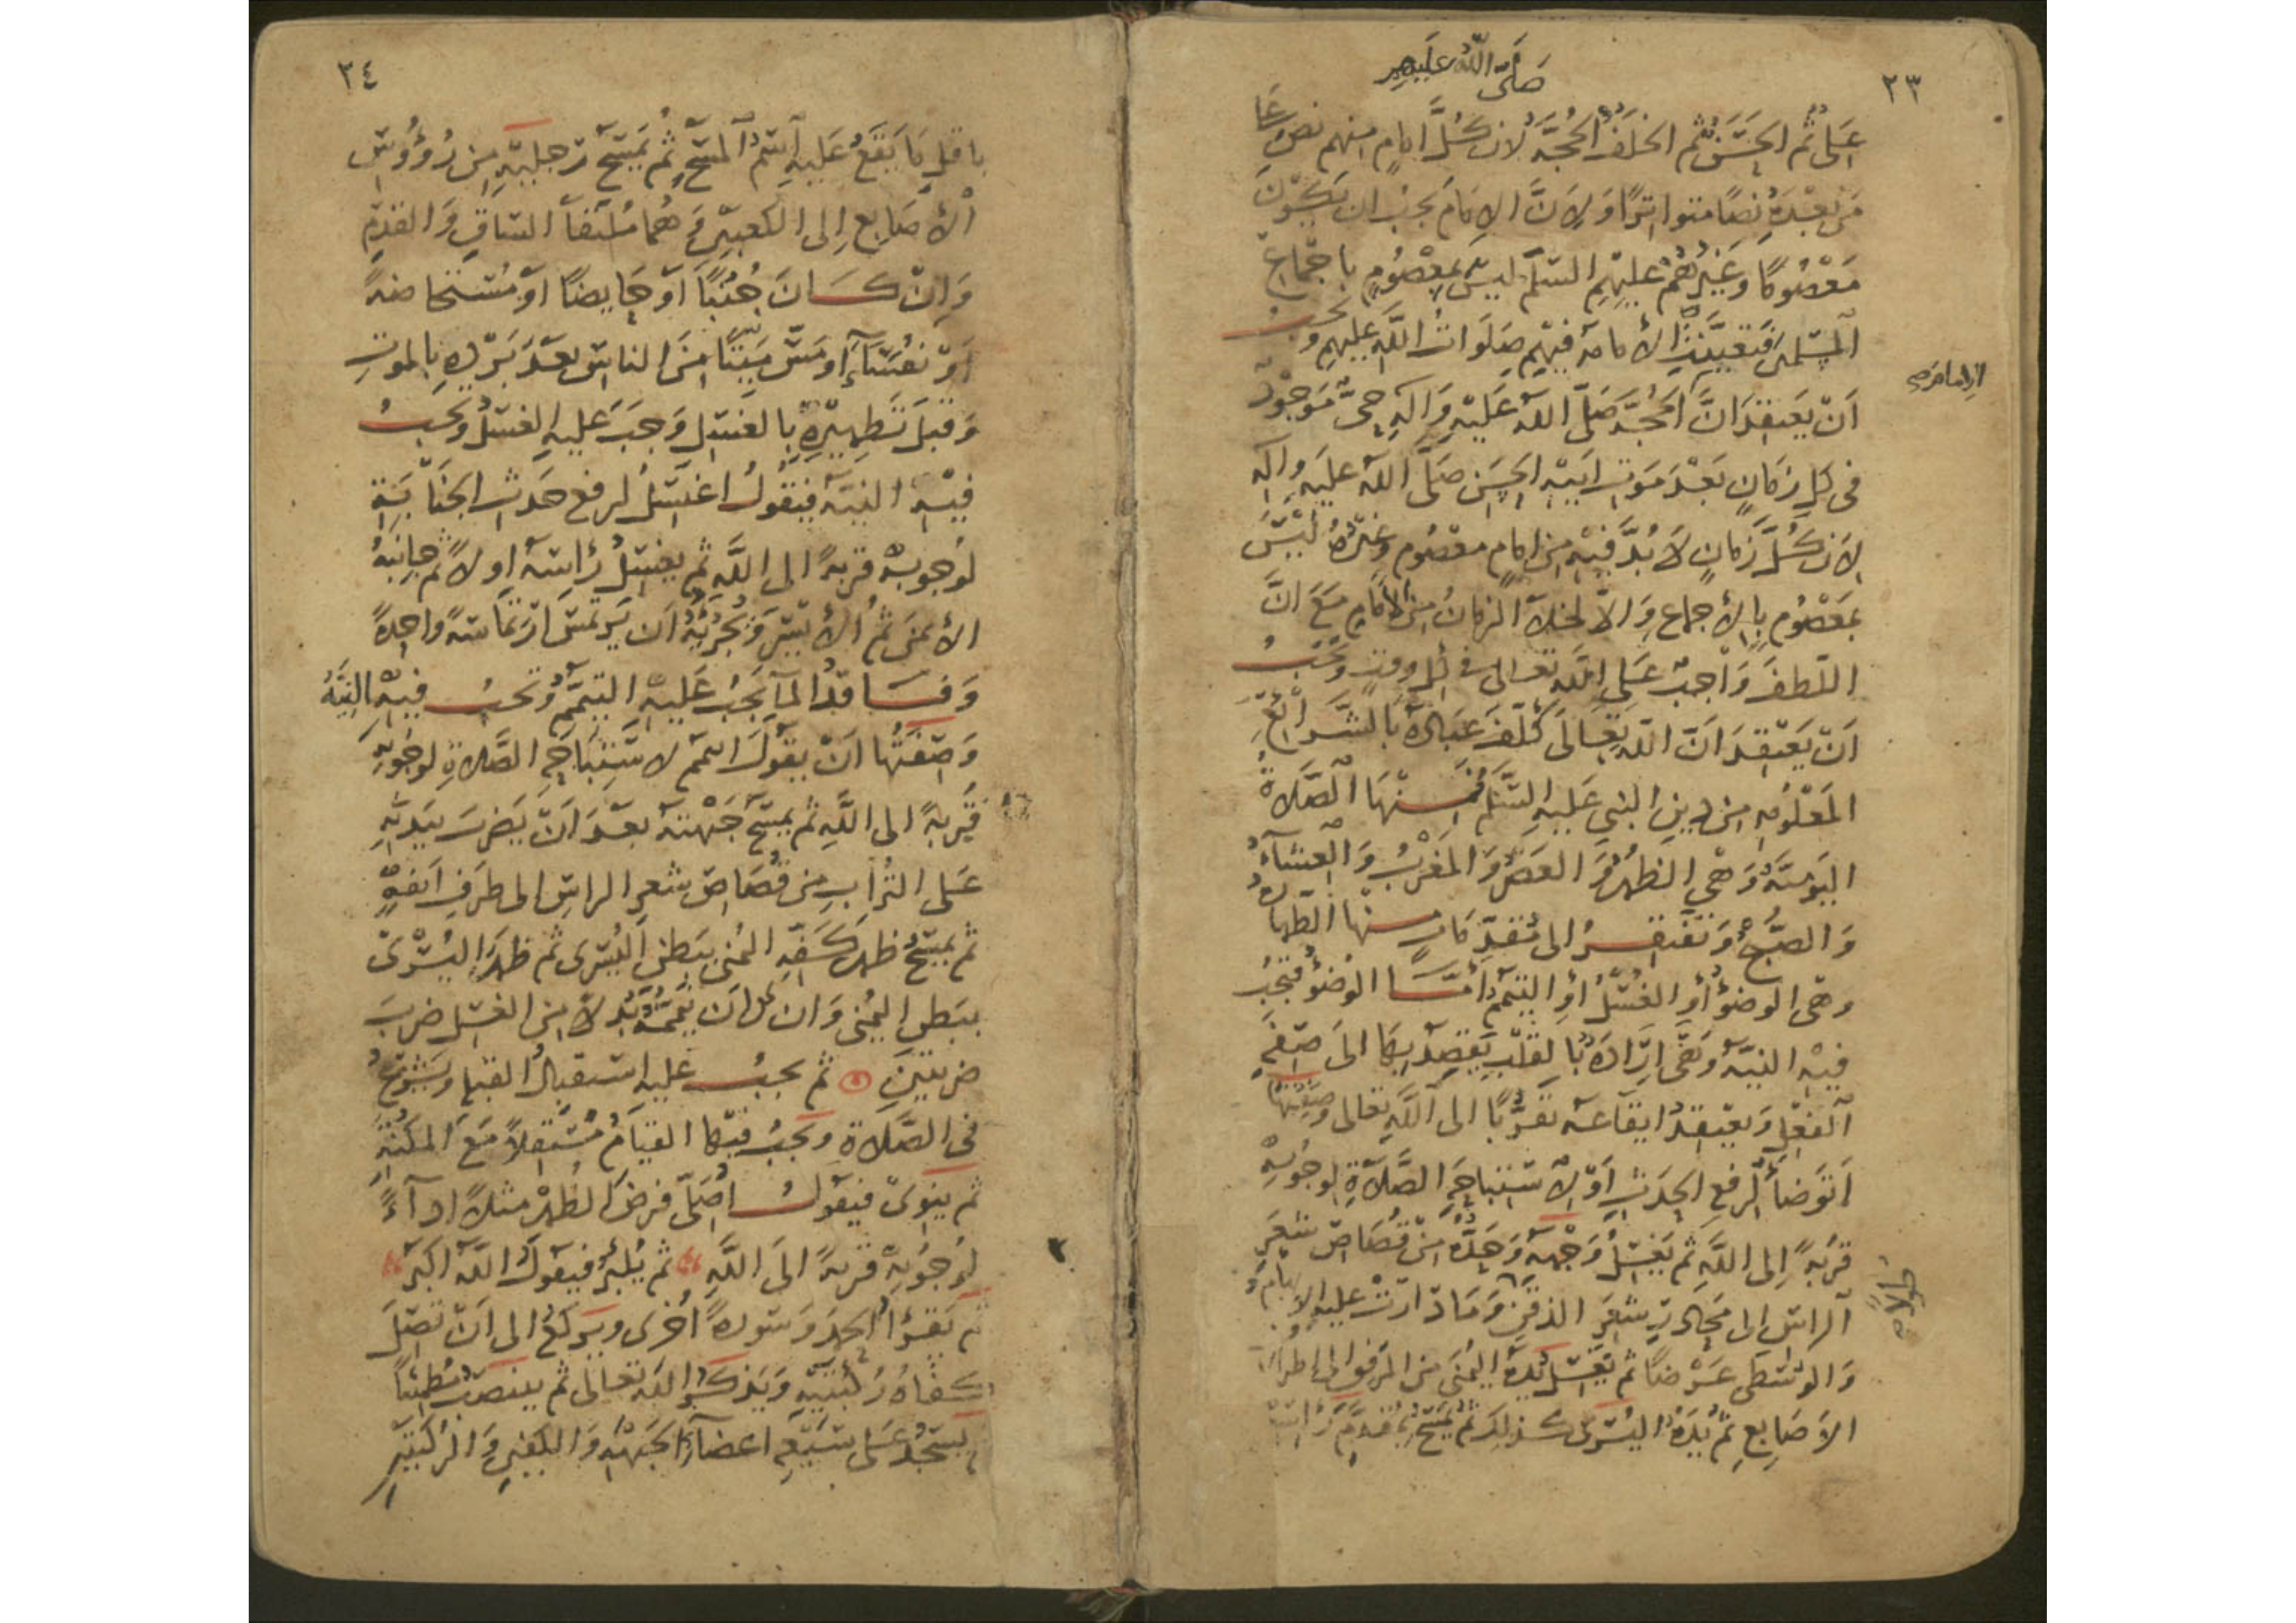 ٢٣
صَلَّى اللّٰهُ عَلَيهِم
عَلى ثُمَّ الحَسَنُ ثُم الخلَفُ الحُجَّةُ لان كُلَّ امامٍ منهم نصَّ عَلى
مَن بَعْدَهُ نصًا متواترًا وَلِانَّ الامَامَ يجبُ ان يَكُونَ
مَعْصُومًا وَغَيرُهُمْ عليهِم السّلم ليسَ بمعصُومٍ باجماع
المسلمين فتعيّنت الأمامة فيهم صَلَوَاتُ اللّٰه عليهم وَيجبُ
اَنْ يَعتقدَ انَّ محمد صَلّى اللّٰه عَلَيْهِ وَالِهِ حىٌّ مَوجُودٌ
الامام م ح م د
فى كلِ زمَانٍ بَعْدَ مَوت ابيه الحسَن صَلَّى اللّٰه عليه وآلِه
لان كُلَّ زَمَانٍ لَابُدَّ فيْهِ من امامٍ معصُومٍ وغيرُهُ ليْسَ
بمعْصُومٍ بالأجماعِ وَالَّا لخلا الزمانُ من الامَامِ مَعَ انَّ
اللّطفَ وَاْجبٌ عَلى اللّٰه تعالى في كل وقتٍ وَيجبُ
اَنْ يَعْتقدَ انَّ اللّٰه تعَالَى كَلَّفَ عبَادَهُ بالشَرائعِ
المَعْلُومه من دين النبي عَليهِ السّلَم فمنهَا الصَّلَاةُ
اليَوميّةُ وَهْيَ الظهرُ وَالعَصْرُ وَالمَغْرِبُ وَالعِشَآءُ
وَالصُّبحُ وَتفتقرُ الى مُقدّمَات منها الطهارةُ
وهى الوضُوءُ أوِ الغُسْلُ اوِ التيمّم أمّا الوُضوُءُ فيَجبُ
فيهِ النيّة وَهَى ارَادَةٌ بالقلبِ يَقصِدُ بهَا الىَ صفةِ
الفعْلِ وَيعتقِدُ ايقَاعَه تقرّبًا الى اللّٰهِ تعَالى وَصِفتها
اَتوضأُ لرفعِ الحدَثِ اَوْ لاسْتباحَةِ الصَّلَاةِ لوجُوبهِ
قربَةً إلى اللّٰهِ ثم يَغسلُ وَجْهَهُ وَحَدُّهُ منْ قُصَاصِ شعَرِ
الراسِ إلى محَادرِ شعَرِ الذقنِ وَمَا دَارتْ عليهِ الإبهَامُ
وَالوسْطى عَرْضًا ثم يَغسل يَدَهُ اليُمنَى من المَرفقِ الى اطراف
الأصَابعِ ثم يَدَهُ اليُسْرَى كذلكَ ثم يَمْسَح مُقدَّم رَاسهِ
٢٤
باقل مَا يَقعُ عَليهِ اسْمُ المسْح ثم يَمْسَحُ رجليْهِ من رُؤُوسِ
الأصَابع إلى الكَعْبيْنِ وَهُما مُلتقَا السّاقِ وَالقدَمِ
وَانْ كَانَ جُنُبًا اَوْ حَايضًا اَوْ مُسْتحاضهً
اَوْ نُفَسَاءَ او مَسَّ مَيتًا منَ الناسِ بَعدَ بَرْدِهِ بالموتِ
وَقبلَ تَطهيْرِهِ بالغسْلِ وَجَبَ عَليهِ الغسْلُ ويَجبُ
فيْهِ النيّه فيَقُولُ اغتَسلُ لرفعِ حَدَثِ الجنَابَةِ
لوُجوبهْ قربةً الى اللّٰه ثم يغسلُ رأسَهُ اولًا ثم جانبَهُ
الأيمَن ثم الأيسَر وَيُجزئُهُ اَن يَرتمسَ ارتمَاسَةً واحِدةً
وَفَاقدُ المَآءِ يَجبُ عَليهْ التيمّم وَيَجبُ فيهْ النيّةُ
وَصِفتُها انْ يقُولَ اتيمّم لاسْتباحَةِ الصَّلاةِ لوجُوبهِ
قُربةً الى اللّٰهِ ثم يمسَحُ جَبْهتَه بعْدَ اَنْ يَضربَ بيَديْهِ
عَلى التُرابِ من قُصَاصِ شعرِ الراسِ الى طرَفِ اَنفهِ
ثم يمسَحُ ظهرَ كَفّهِ اليُمنى ببطنِ اليُسْرى ثم ظهرَ اليُسْرَىْ
ببَطنِ اليُمنى وَان كانَ تيمّمُه بَدلًا من الغسْلِ ضربَ
ضربتيْنِ ۞ ثم يجبُ عليه استقبالُ القبلة وَيَشرَعُ
فى الصَّلَاةِ ويجبُ فيهَا القيَامُ مُسْتقلًا مَعَ المكنَةِ
ثم ينوىْ فيَقولُ اُصَلّى فرضَ الظهْرِ مثلًا ادَآءً
لوُجُوبِهْ قربةً الىَ اللَّهِ ثم يُكبّر فيَقولُ اللّٰهُ اكبَرُ
ثم يَقرأُ الحمدَ وَسُورةً اُخرى ويَركعُ الى اَنْ تصِلَ
كفّاهُ رُكبتيْهِ وَيَذكُرُ اللّٰه تعَالى ثم ينتصبُ مُطمئنًا
ثم يَسجُدُ عَلى سَبْعةِ اعضَآءَ الجَبْهَةِ وَالكَفّينِ وَالركبتَيْنِ